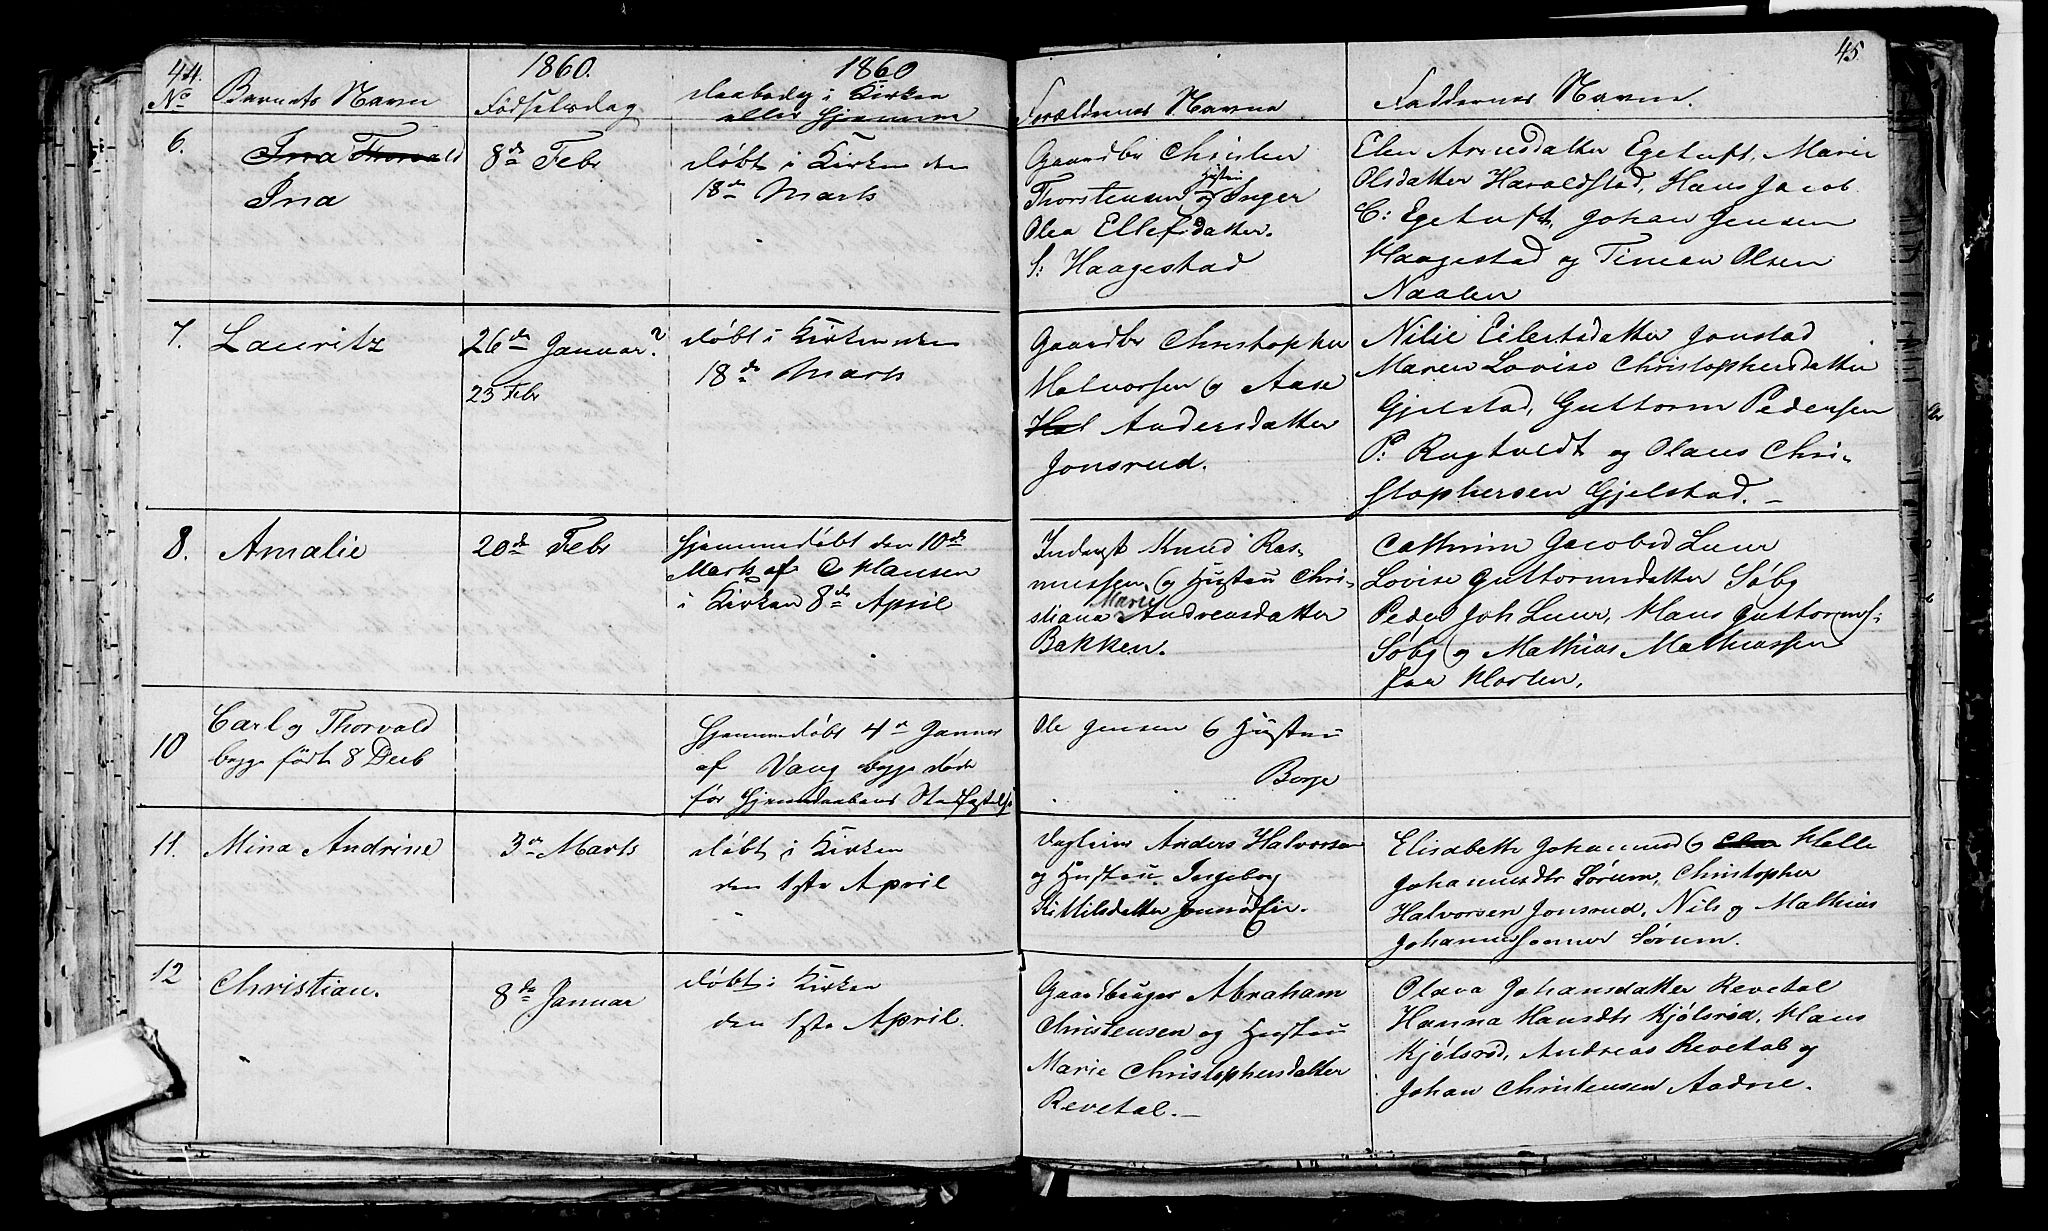 44.
1860.
1860
No Barnets Navn
Fødselsdag
Daabsdag i Kirken
eller Hjemme
6.
Ina Thorvald
Ina
8de Febr
døbt i Kirken den
18de Marts
7.
Lauritz
26de Januar?
23 Febr
døbt i Kirken den
18de Marts
8.
Amalie
20de Febr
Hjemmedøbt den 10de
Marts af C Hansen
i Kirken 8de April
10
Carl og Thorvald
begge født 8 Decb
Hjemmedøbt 4de Januar
af Vang begge døde
før Hjemmedaabens Stadfæstelse
11.
Mina Andrine
3de Marts
døbt i Kirken
den 1ste April
12
Christian.
8de Januar
døbt i Kirken
den 1ste April.
45.
Forældrenes Navne
Faddernes Navne.
Gaardbr Christen
Thorstensen og Hustru Inger
Olea Ellefsdatter.
S: Haagestad
Elen Arnesdatter Egetuft, Marie
Olsdatter Haraldstad, Hans Jacob
C: Egetuft, Johan Jensen
Haagestad og Olsen
Gaardbr Christopher
Halvorsen og Aase
Hal Andersdatter
Jonsrud.
Nilie Eilertsdatter Jonstad
Maren Lovise Christophersdatter
Gjelstad, Guttorm Pedersen
P: og Olaus Chri-
stophersen Gjelstad. -
Inderst Knud Ras-
mussen og Hustru Chri-
stiane Marie Andreasdatter
Bakken.
Cathrine Jacobsd Luur
Lovise Guttormsdatter Søby
Peder Joh Luur, Hans Guttorms:
Søby og Mathias Mathiassen
fra Horten,
Ole Jensen og Hustru
Borge
Anders Halvorsen
og Hustru Ingeborg
Kittilsdatter
Elisabeth Johannesd og Helle
Johannesdtr Sørum, Christopher
Halvorsen Jonsrud, Nils og Mathias
Johannessønner Sørum.
Gaardbruger Abraham
Christensen og Hustru
Marie Christophersdatter
Revetal. -
Olava Johansdatter Revetal
Hanna Hansdtr Kjølsrød, Hans
Kjølsrød, Andreas Revetal og
Johan Christensen Aadne.